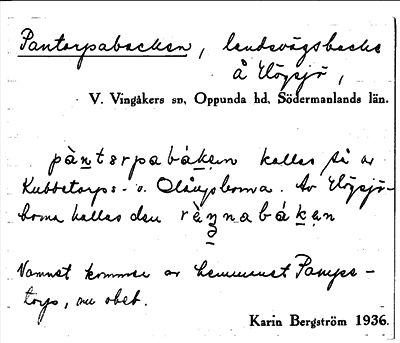 Pantorpabacken, landsvägsbacke
å Högsjö,
V. Vingåkers sn, Oppunda hd, Södermanlands län.
pàntɘrpabákɘn kallas så av
Kubbetorps- o. Olängsborna. Av Högsjö-
borna kallas den rànnabákɘn
Namnet kommer av hemmanet Pampe-
torp, nu obeb.
Karin Bergström 1936.